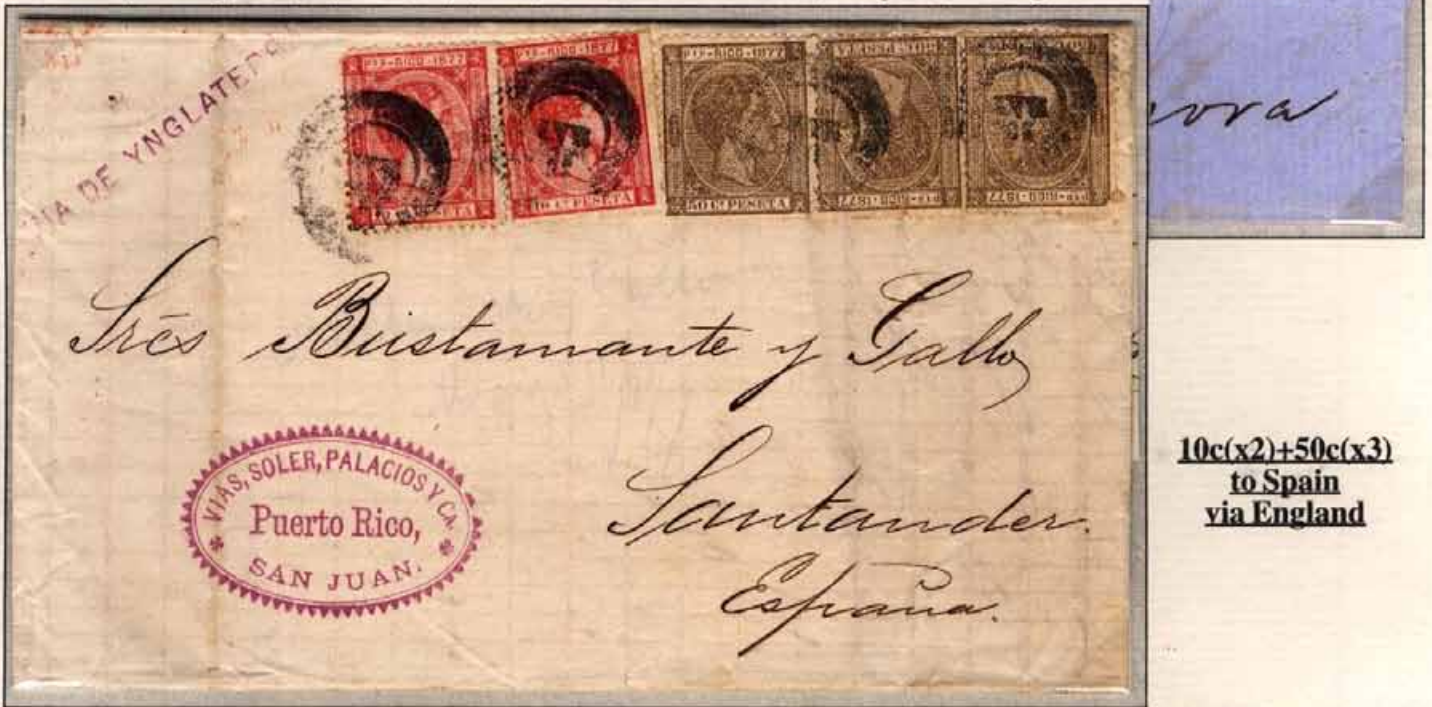 DE YNGLATER
PTO-RICO-1877
10 Cs PESETA
PTO-RICO-1877
10 Cs PESETA
PTO-RICO-1877
50 Cs PESETA
PTO-RICO-1877
PTO-RICO-1877
Srés Bustamante y Gallo
Santander.
España.
VIAS, SOLER, PALACIOS Y CA.
Puerto Rico,
SAN JUAN.
10c(x2)+50c(x3)
to Spain
via England